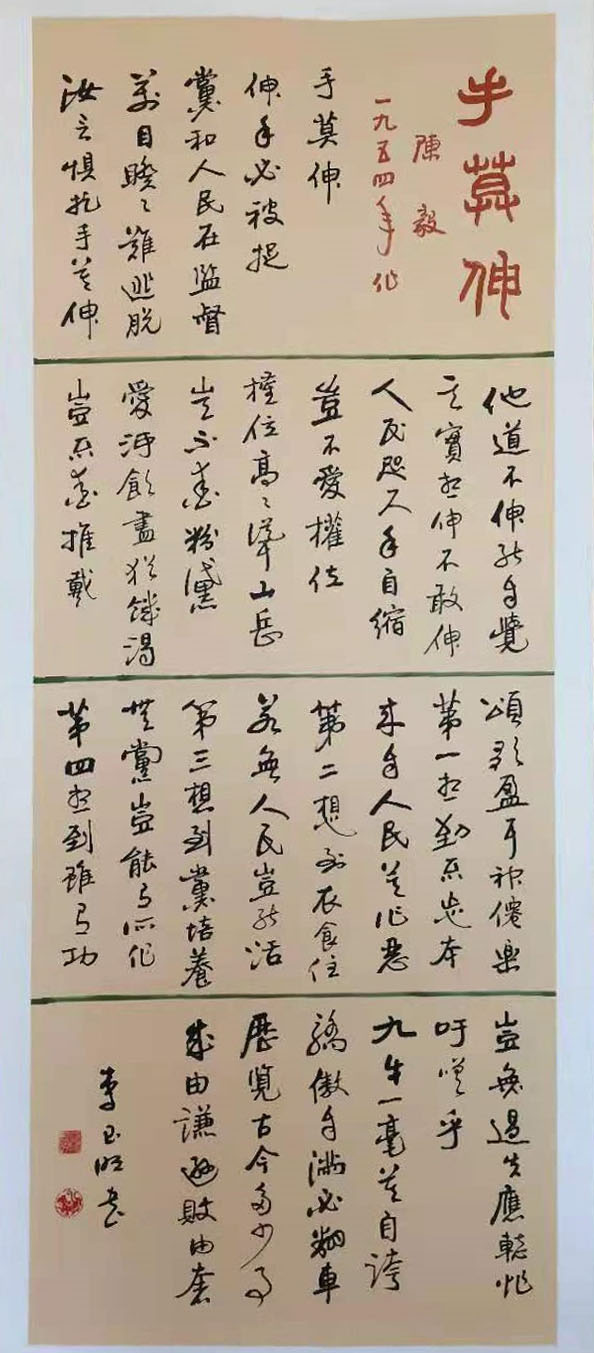 手莫伸
陳毅
一九五四年作
手莫伸
伸手必被捉
黨和人民在監督
萬目睽々難逃脫
汝言懼捉手莫伸
他道不伸能自覺
其實想伸不敢伸
人民咫尺手自縮
豈不愛權位
權位高々聳山岳
豈不愛粉黛
愛河飲盡猶饑渴
豈不愛推戴
頌歌盈耳神僊樂
第一想到不忘本
來自人民莫作惡
第二想到衣食住
若無人民豈能活
第三想到黨培養
無黨豈能有所作
第四想到雖有功
豈無過失應慚怍
吁嗟乎
九牛一毫莫自誇
驕傲自滿必翻車
歷覽古今多少事
成由謙遜敗由奢
李 書